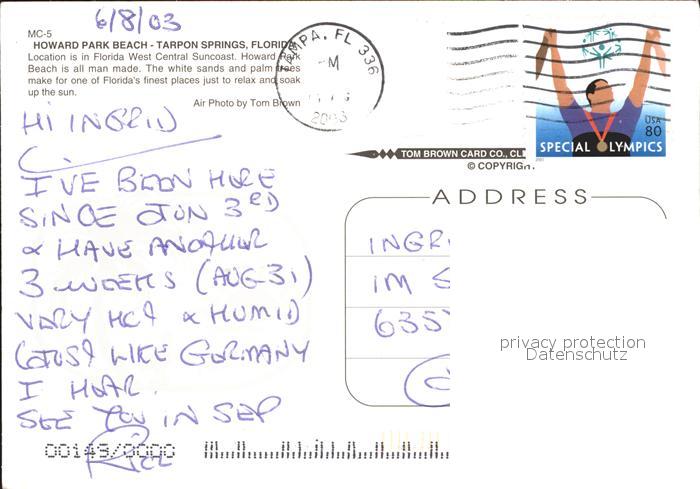 6/8/03
MC-5
HOWARD PARK BEACH - TARPON SPRINGS, FLORIDA
Location is in Florida West Central Suncoast. Howard Park
Beach is all man made. The white sands and palm trees
make for one of Florida's finest places just to relax and soak
up the sun.
Air Photo by Tom Brown
TAMPA, FL 336
M
2003
USA
80
SPECIAL OLYMPICS
TOM BROWN CARD CO., CL
© COPYRIGH
HI INGRID
I'VE BEEN HERE
SINCE JUN 3RD
& HAVE ANOTHER
3 WEEKS (AUG 31)
VERY HOT & HUMID
(JUST LIKE GERMANY
I HEAR.
SEE YOU IN SEP
00149/0000
ADDRESS
INGRI
IM S
635
privacy protection
Datenschutz